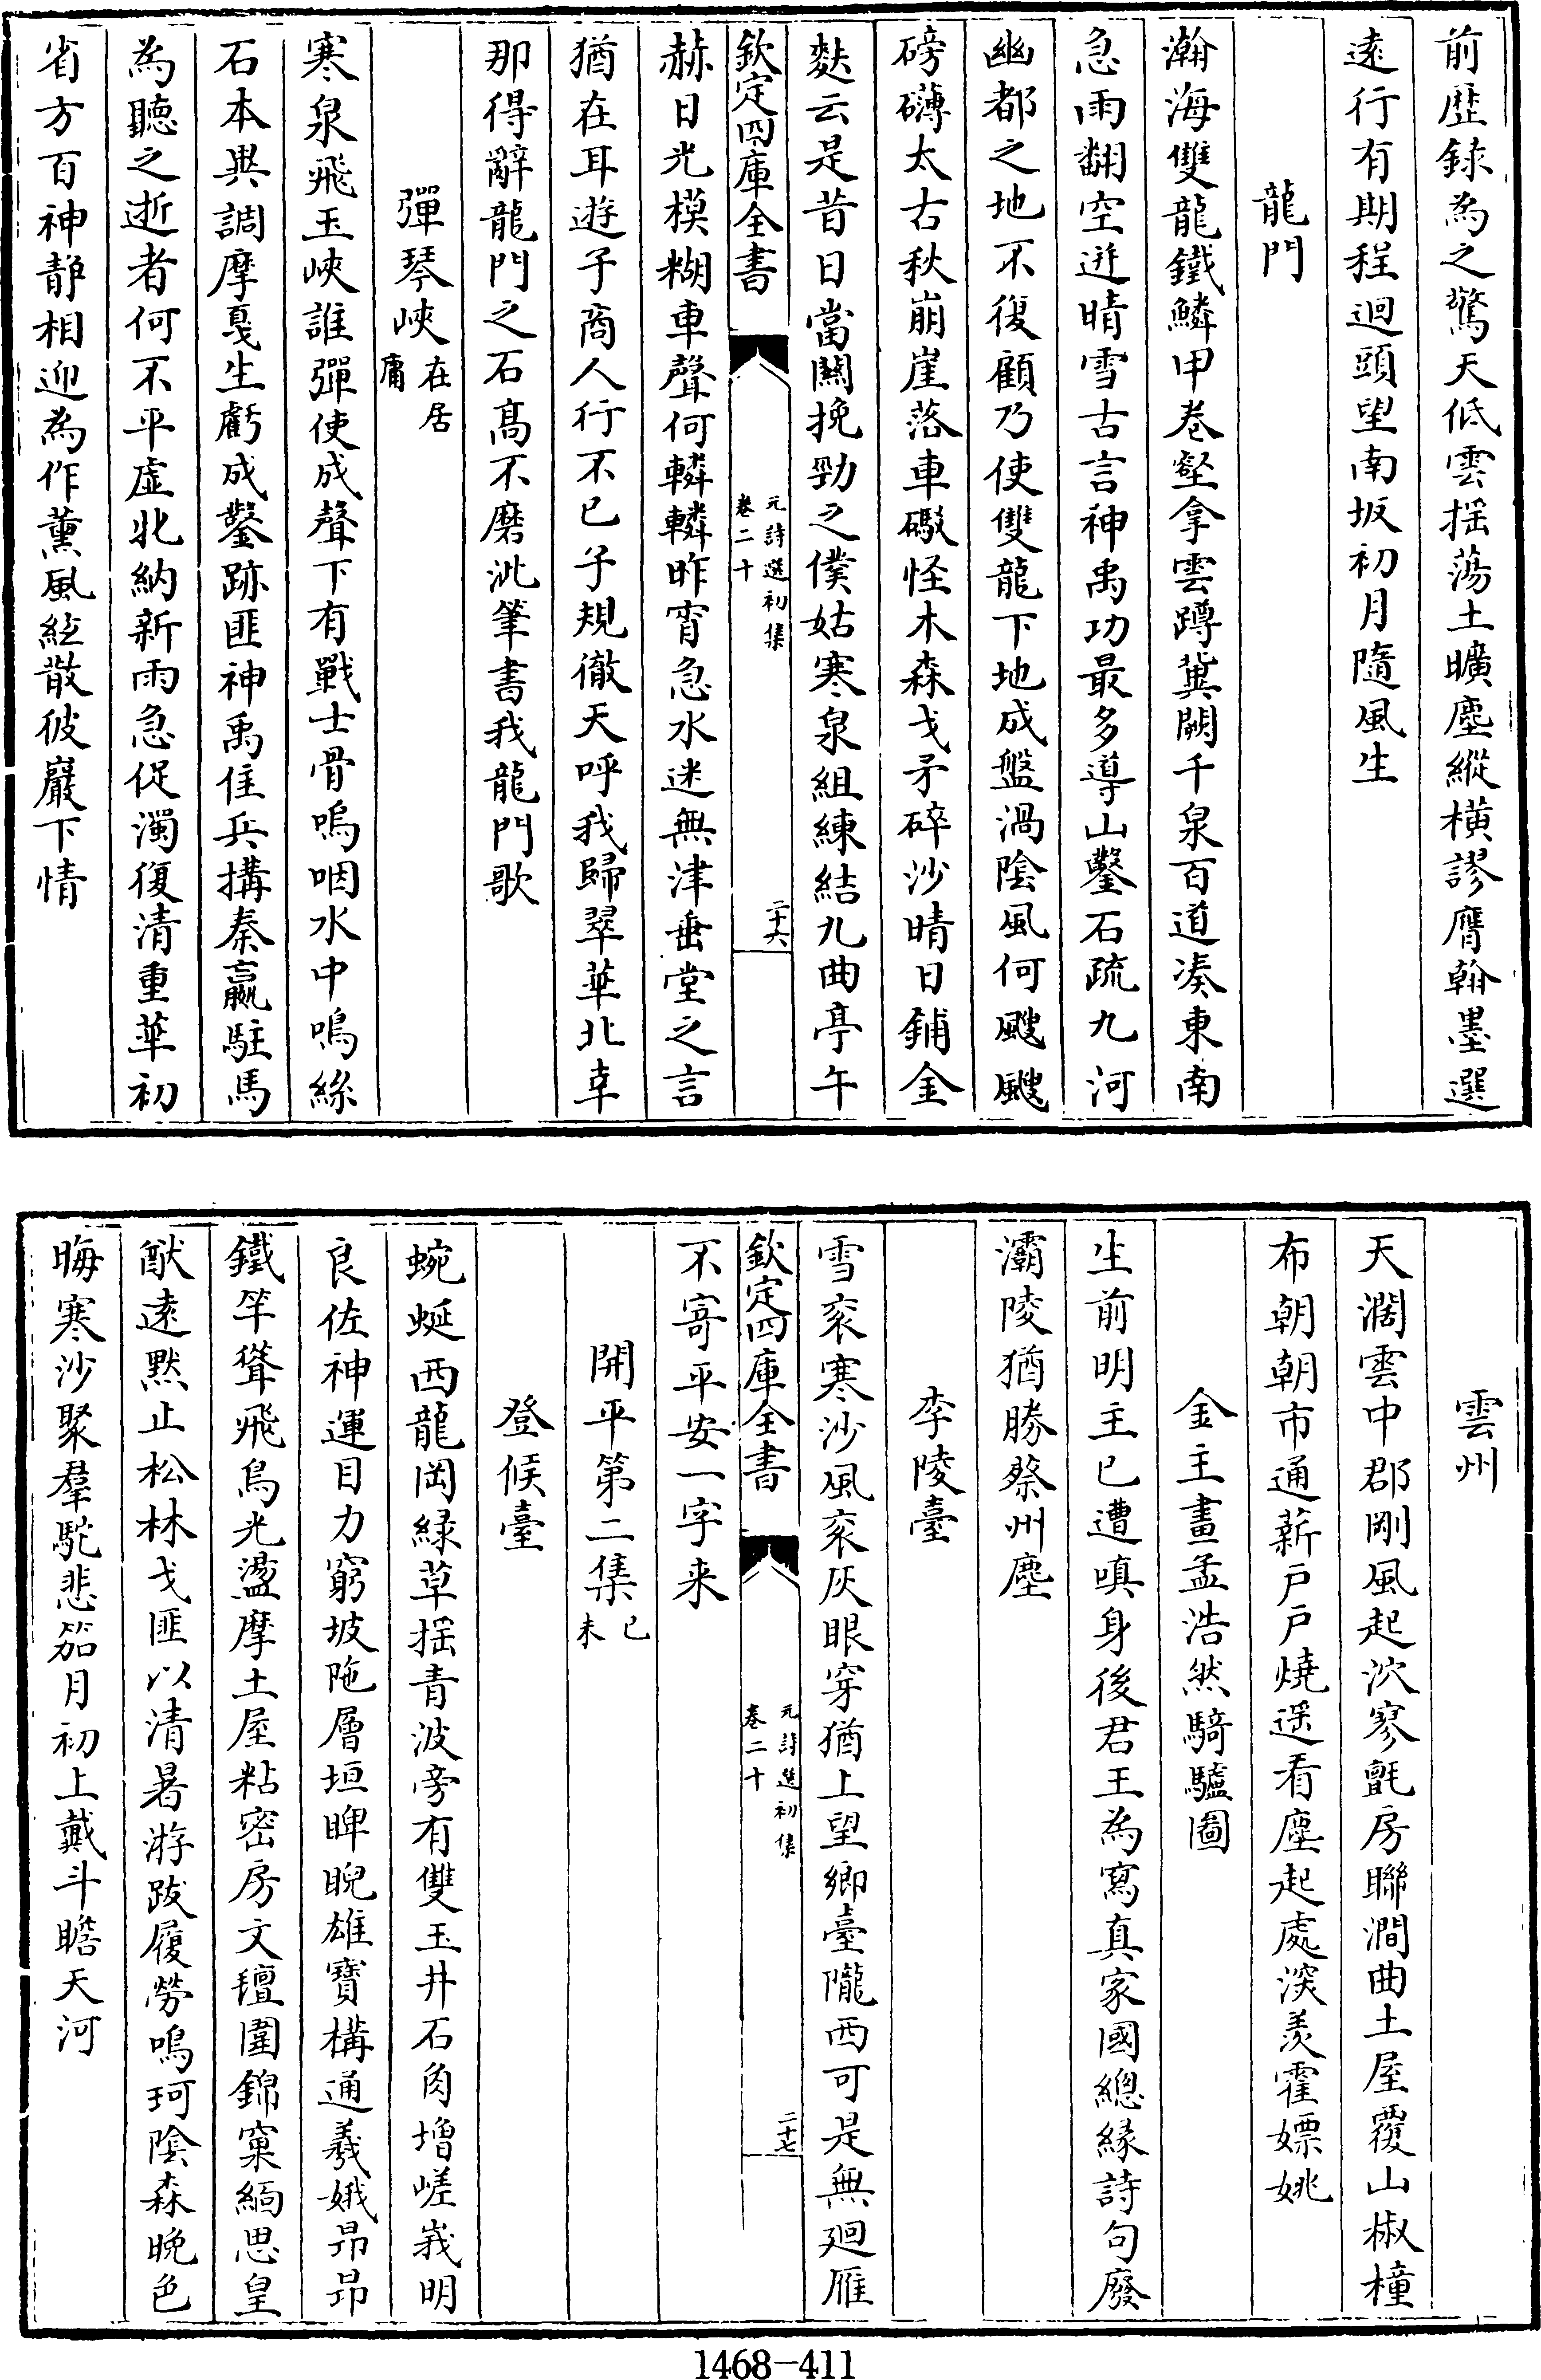 前歴録為之驚天低雲揺蕩土曠塵縱横謬膺翰墨選
遠行有期程迴頭望南坂初月隨風生
龍門
瀚海雙龍鐵鱗甲卷壑拿雲蹲冀闕千泉百道湊東南
急雨翻空迸晴雪古言神禹功最多導山鑿石疏九河
幽都之地不復顧乃使雙龍下地成盤渦陰風何颼颼
磅礴太古秋崩崖落車礮怪木森戈矛碎沙晴日鋪金
麩云是昔日當關挽勁之僕姑寒泉組練結九曲亭午
欽定四庫全書
元詩選初集
卷二十
二十六
赫日光模糊車聲何轔轔昨宵急水迷無津垂堂之言
猶在耳遊子商人行不已子規徹天呼我歸翠華北幸
那得辭龍門之石髙不磨泚筆書我龍門歌
彈琴峽在居庸
寒泉飛玉峽誰彈使成聲下有戰士骨嗚咽水中鳴絲
石本異調摩戛生虧成鑿跡匪神禹佳兵搆秦嬴駐馬
為聽之逝者何不平虚牝納新雨急促濁復清重華初
省方百神静相迎為作薫風絃散彼巖下情
雲州
天濶雲中郡剛風起泬寥氊房聯澗曲土屋覆山椒橦
布朝朝市通薪戸戸燒遥看塵起處深羨霍嫖姚
金主畫孟浩然騎驢圖
生前明主已遭嗔身後君王為寫真家國總緣詩句廢
灞陵猶勝蔡州塵
李陵臺
雪衮寒沙風衮灰眼穿猶上望鄉臺隴西可是無迴雁
欽定四庫全書
元詩選初集
卷二十
二十七
不寄平安一字来
開平第二集已未
登候臺
蜿蜒西龍岡緑草揺青波旁有雙玉井石角増嵯峩明
良佐神運目力窮坡陁層垣睥睨雄寳構通羲娥昻昻
鐵竿聳飛鳥光盪摩土屋粘密房文氊圍錦窠緬思皇
猷遠黙止松林戈匪以清暑游跋履勞鳴珂陰森晚色
晦寒沙聚羣駝悲笳月初上戴斗瞻天河
1468-411